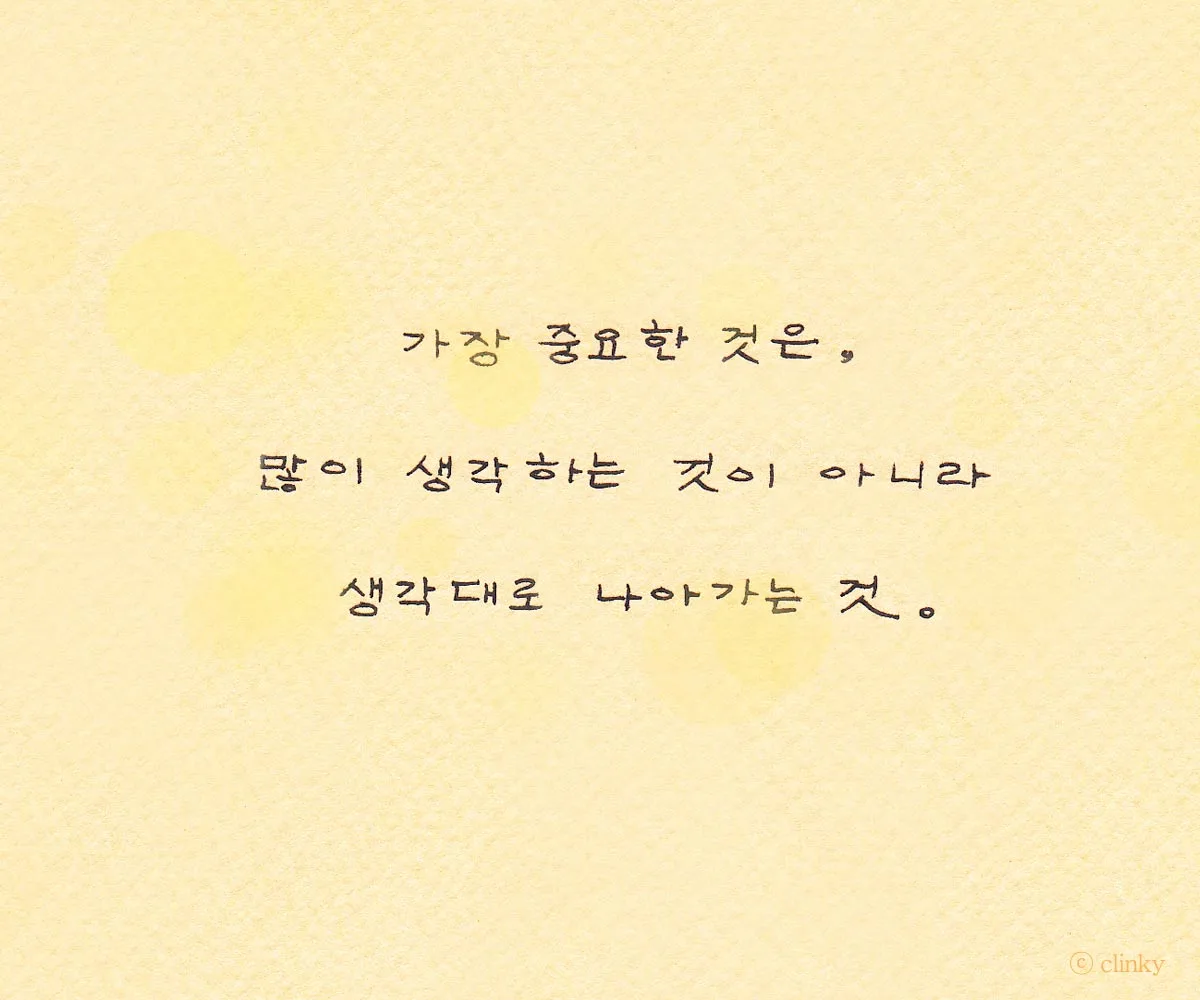 가장 중요한 것은,
많이 생각하는 것이 아니라
생각대로 나아가는 것.
ⓒ clinky